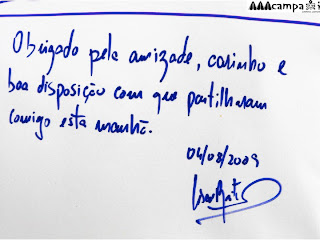 AAAcampa
Obrigado pela amizade, carinho e
boa disposição com que partilharam
comigo esta manhã.
04/08/2009